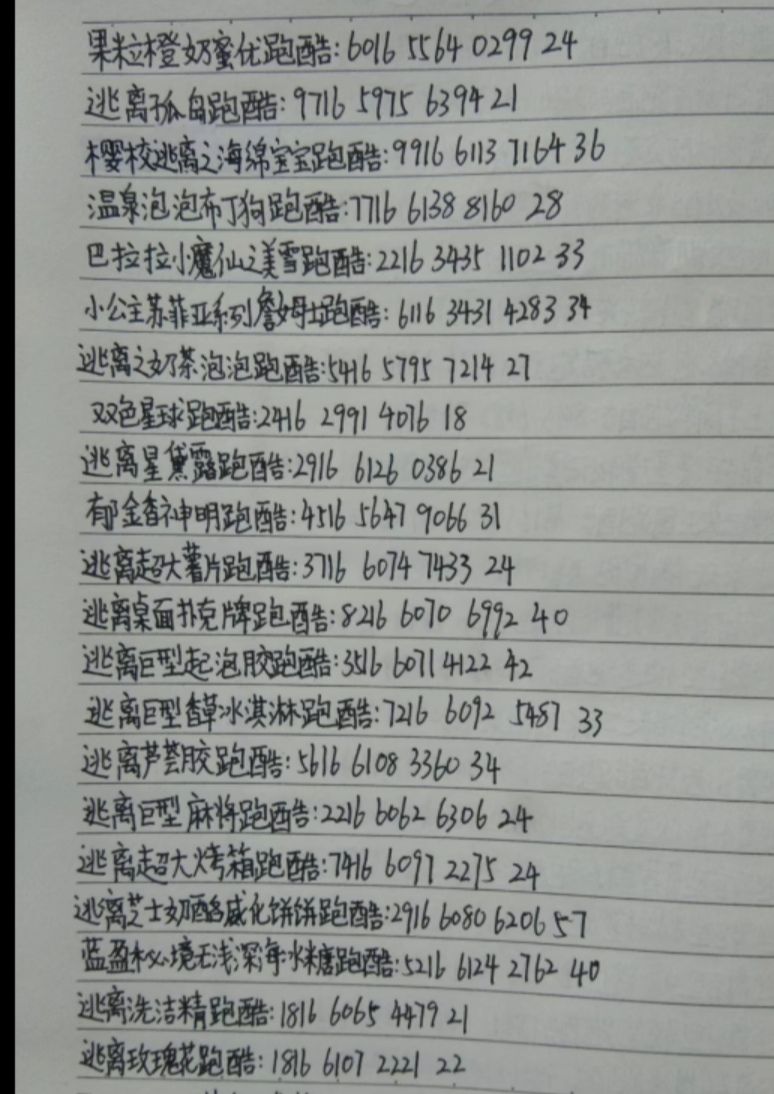 果粒橙奶蜜优跑酷:6016 5564 0299 24
逃离孤岛跑酷:9716 5975 6394 21
樱校逃离之海绵宝宝跑酷:9916 6113 7164 36
温泉泡泡布丁狗跑酷:7716 6138 8160 28
巴拉拉小魔仙之美雪跑酷:2216 3435 1102 33
小公主苏菲亚系列詹姆士跑酷:6116 3431 4283 34
逃离之奶茶泡泡跑酷:5416 5795 7214 27
双色星球跑酷:2416 2991 4076 18
逃离星黛露跑酷:2916 6126 0386 21
郁金香神明跑酷:4516 5647 9066 31
逃离超大薯片跑酷:3716 6074 7433 24
逃离桌面扑克牌跑酷:8216 6070 6992 40
逃离巨型起泡胶跑酷:3516 6071 4122 42
逃离巨型香草冰淇淋跑酷:7216 6092 5487 33
逃离芦荟胶跑酷:5616 6108 3360 34
逃离巨型麻将跑酷:2216 6062 6306 24
逃离超大烤箱跑酷:7416 6097 2275 24
逃离芝士奶酪威化饼饼跑酷:2916 6080 6206 57
蓝盈秘境无浅深海水糖跑酷:5216 6124 2762 40
逃离洗洁精跑酷:1816 6065 4479 21
逃离玫瑰花跑酷:1816 6107 2221 22